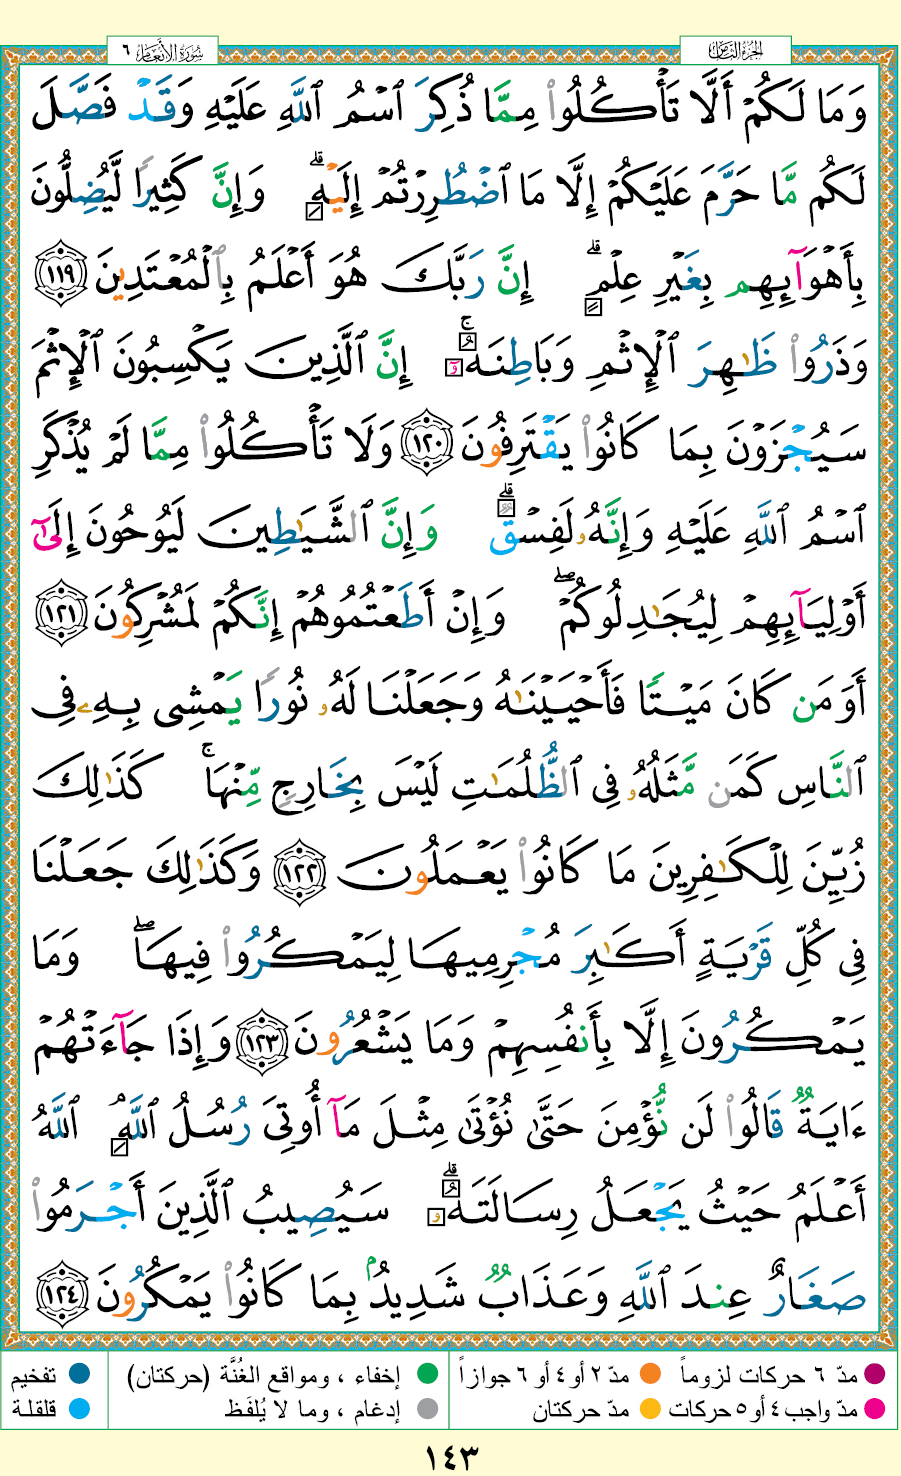 الجزء الثامن
سورة الأنعام ٦
وَمَا لَكُمْ أَلَّا تَأْكُلُوا۟ مِمَّا ذُكِرَ ٱسْمُ ٱللَّهِ عَلَيْهِ وَقَدْ فَصَّلَ
لَكُم مَّا حَرَّمَ عَلَيْكُمْ إِلَّا مَا ٱضْطُرِرْتُمْ إِلَيْهِ ۗ وَإِنَّ كَثِيرًا لَّيُضِلُّونَ
بِأَهْوَآئِهِم بِغَيْرِ عِلْمٍ ۗ إِنَّ رَبَّكَ هُوَ أَعْلَمُ بِٱلْمُعْتَدِينَ ١١٩
وَذَرُوا۟ ظَـٰهِرَ ٱلْإِثْمِ وَبَاطِنَهُۥٓ ۚ إِنَّ ٱلَّذِينَ يَكْسِبُونَ ٱلْإِثْمَ
سَيُجْزَوْنَ بِمَا كَانُوا۟ يَقْتَرِفُونَ ١٢٠ وَلَا تَأْكُلُوا۟ مِمَّا لَمْ يُذْكَرِ
ٱسْمُ ٱللَّهِ عَلَيْهِ وَإِنَّهُۥ لَفِسْقٌ ۗ وَإِنَّ ٱلشَّيَـٰطِينَ لَيُوحُونَ إِلَىٰٓ
أَوْلِيَآئِهِمْ لِيُجَـٰدِلُوكُمْ ۖ وَإِنْ أَطَعْتُمُوهُمْ إِنَّكُمْ لَمُشْرِكُونَ ١٢١
أَوَمَن كَانَ مَيْتًا فَأَحْيَيْنَـٰهُ وَجَعَلْنَا لَهُۥ نُورًا يَمْشِى بِهِۦ فِى
ٱلنَّاسِ كَمَن مَّثَلُهُۥ فِى ٱلظُّلُمَـٰتِ لَيْسَ بِخَارِجٍ مِّنْهَا ۚ كَذَٰلِكَ
زُيِّنَ لِلْكَـٰفِرِينَ مَا كَانُوا۟ يَعْمَلُونَ ١٢٢ وَكَذَٰلِكَ جَعَلْنَا
فِى كُلِّ قَرْيَةٍ أَكَـٰبِرَ مُجْرِمِيهَا لِيَمْكُرُوا۟ فِيهَا ۖ وَمَا
يَمْكُرُونَ إِلَّا بِأَنفُسِهِمْ وَمَا يَشْعُرُونَ ١٢٣ وَإِذَا جَآءَتْهُمْ
ءَايَةٌ قَالُوا۟ لَن نُّؤْمِنَ حَتَّىٰ نُؤْتَىٰ مِثْلَ مَآ أُوتِىَ رُسُلُ ٱللَّهِ ٱللَّهُ
أَعْلَمُ حَيْثُ يَجْعَلُ رِسَالَتَهُۥ ۗ سَيُصِيبُ ٱلَّذِينَ أَجْرَمُوا۟
صَغَارٌ عِندَ ٱللَّهِ وَعَذَابٌ شَدِيدٌۢ بِمَا كَانُوا۟ يَمْكُرُونَ ١٢٤
مدّ ٦ حركات لزوماً مدّ ٢ أو ٤ أو ٦ جوازاً إخفاء ، ومواقع الغُنَّة (حركتان) تفخيم
مدّ واجب ٤ أو ٥ حركات مدّ حركتان إدغام ، وما لا يُلفَظ قلقلة
١٤٣